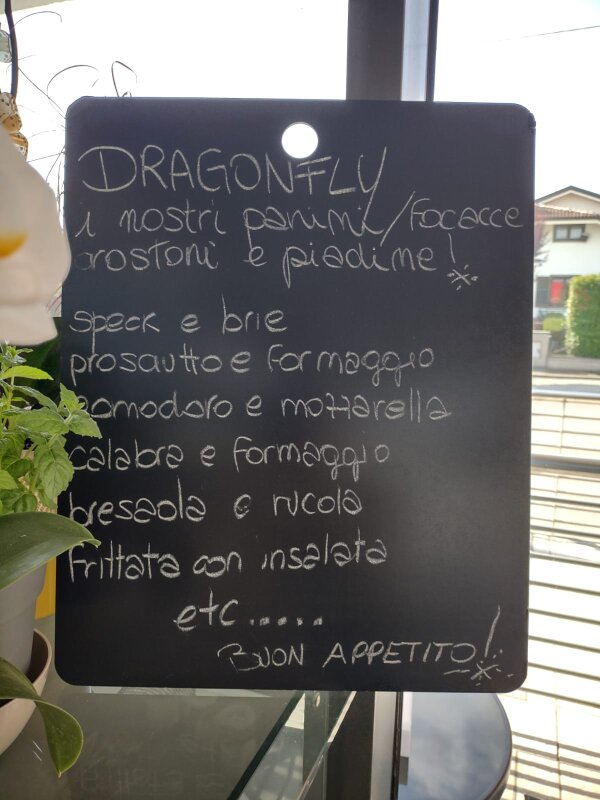 DRAGONFLY
i nostri panini/Focacce
arostoni e piadine!
speck e brie
prosciutto e Formaggio
pomodoro e mozzarella
calabra e Formaggio
bresaola e rucola
Frittata con insalata
etc.....
BUON APPETITO!